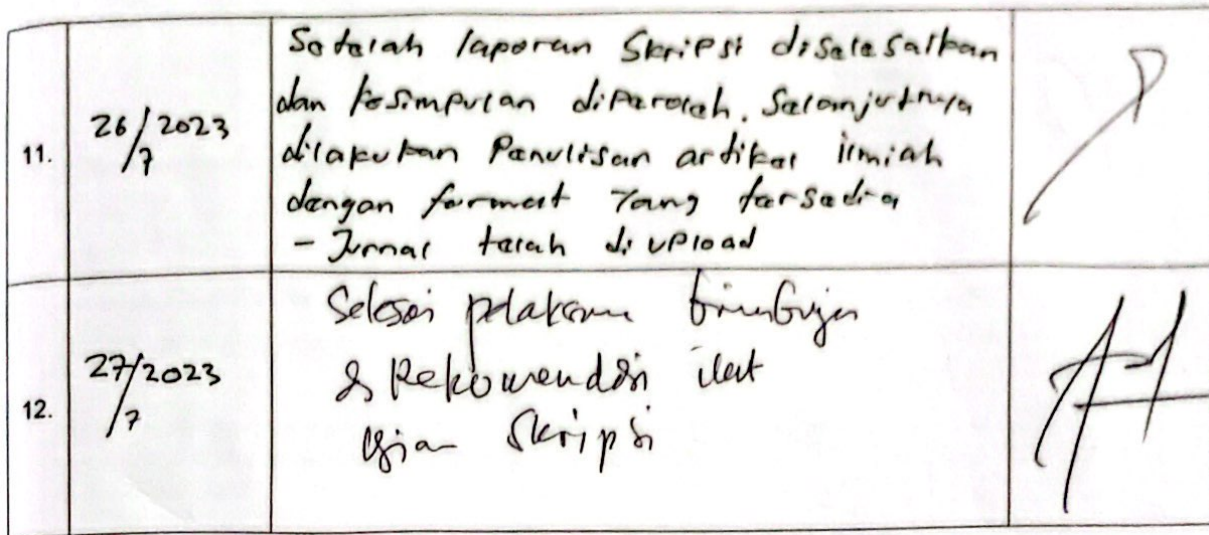 11.
26/7 2023
Setelah laporan Skripsi diselesaikan
dan kesimpulan diperoleh. Selanjutnya
dilakukan Penulisan artikel ilmiah
dengan format Yang tersedia
- Jurnal telah di upload
12.
27/7 2023
Selesai bimbingan
Rekomendasi
Skripsi